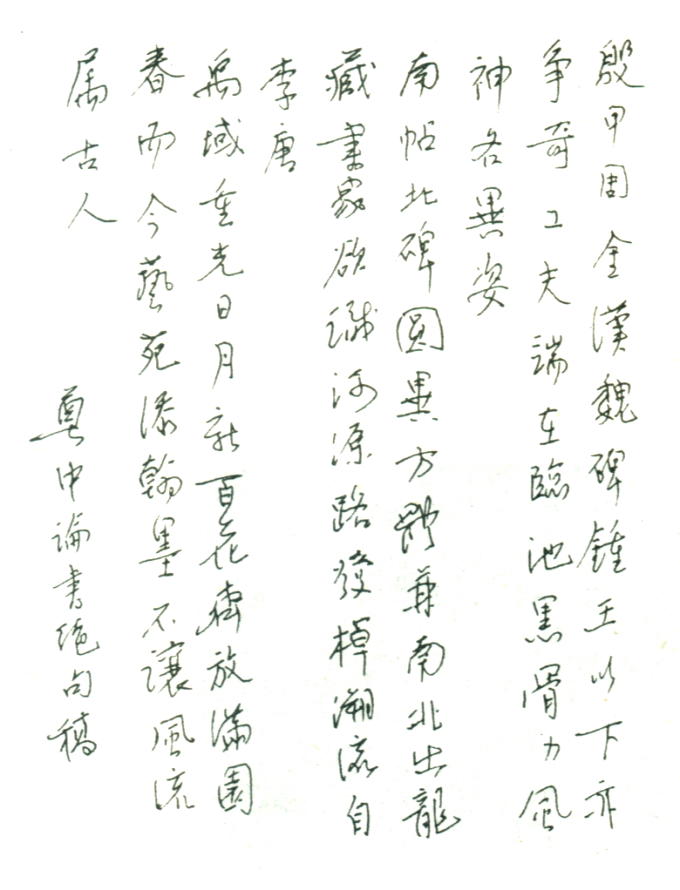 殷甲周金漢魏碑鍾王以下亦
争奇工夫端在臨池黑骨力風
神各異姿
南帖北碑圓異方能兼南北出龍
藏書家欲識河源路發棹溯流自
李唐
禹域重光日月新百花齊放滿園
春而今藝苑添翰墨不讓風流
属古人
中論書絕句稿